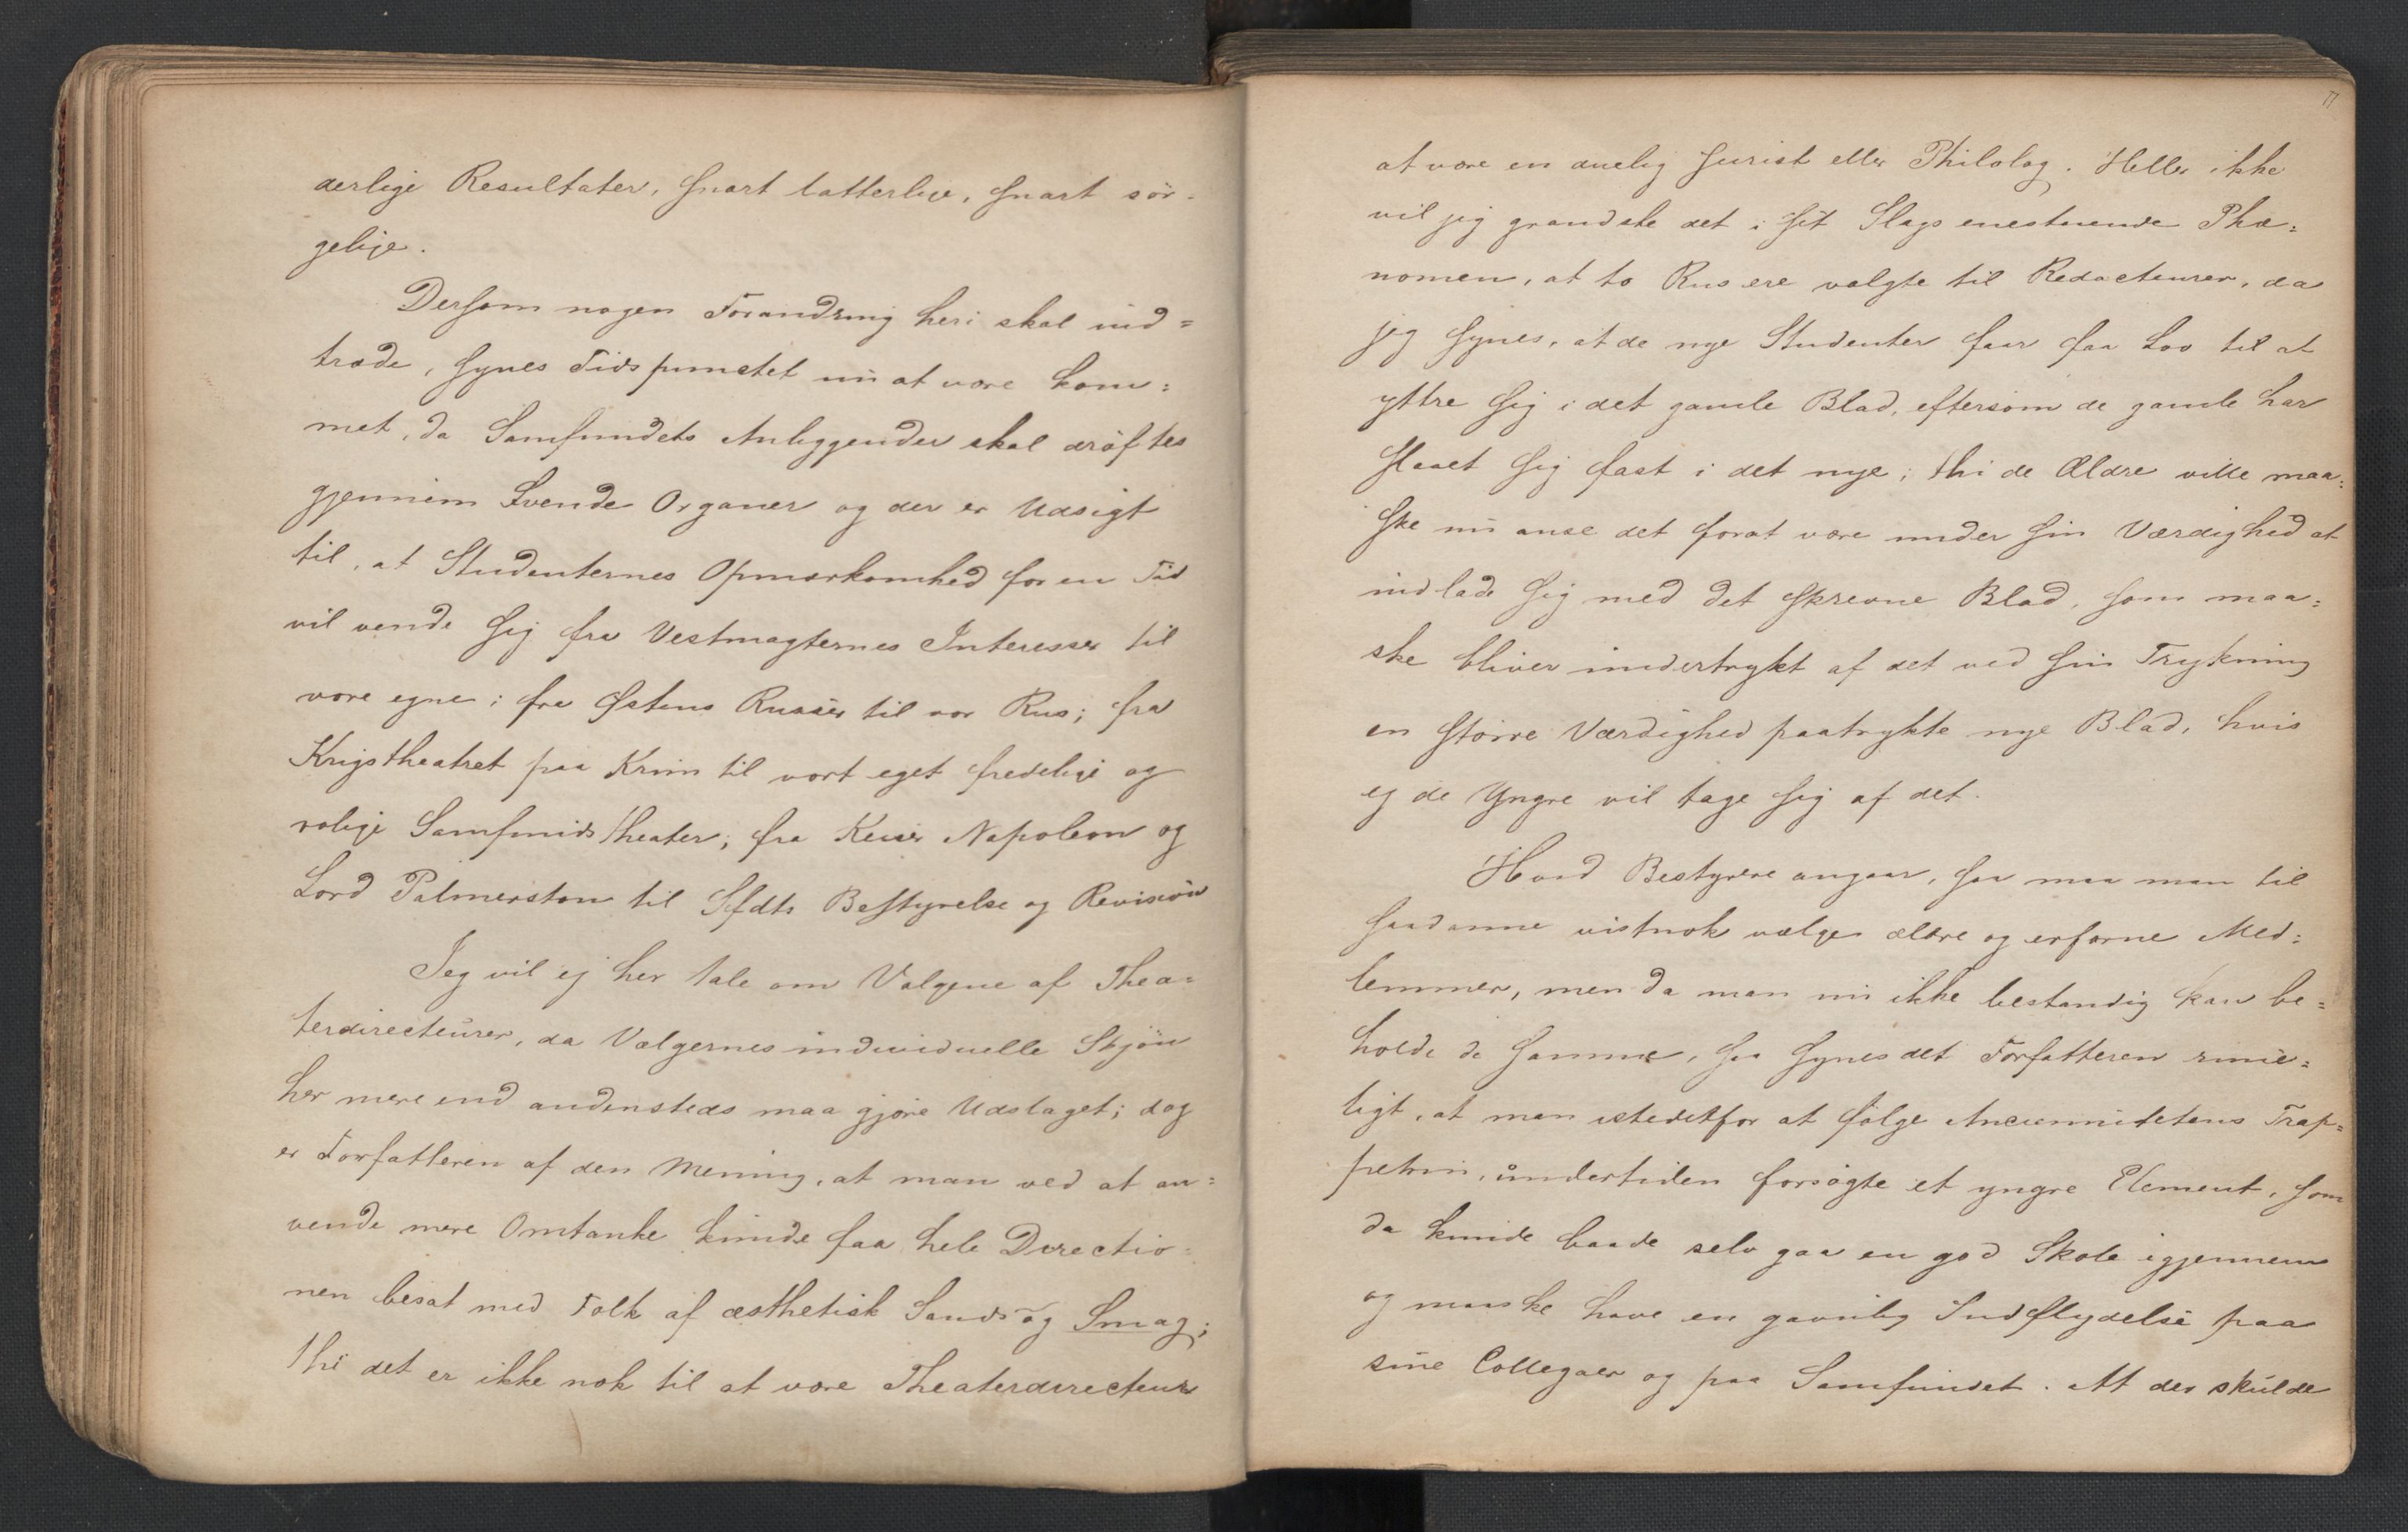 derlige Resultater, snart latterlige, snart sör-
gelige.
Dersom nogen Forandring heri skal ind=
træde, synes Tidspunctet nu at være kom=
met, da Samfundets Anliggender skal dröftes
gjennem tvende Organer og der er Udsigt
til, at Studenternes Opmærksomhed for en Tid
vil vende sig fra Vestmagternes Interesser til
vore egne; fra Østens Russer til vor Rus; fra
Krigstheatret paa Krim til vort eget fredelige og
rolige Samfundstheater; fra Keiser Napoleon og
Lord Palmerston til Sfdts Bestyrelse og Revision
Jeg vil ej her tale om Valgene af Thea=
terdirecteurer, da Vælgernes individuelle Skjön
her mere end andensteds maa gjöre Udslaget; dog
er Forfatteren af den Mening, at man ved at an=
vende mere Omtanke kunde faa hele Directio=
nen besat med Folk af æsthetisk Sands og Smag;
thi det er ikke nok til at være Theaterdirecteur
at være en duelig Jurist eller Philolog. Heller ikke
vil jeg grandske det i sit Slags enestaaende Phæ=
nomen, at to Rus ere valgte til Redacteurer, da
jeg synes, at de nye Studenter faar faa Lov til at
yttre sig i det gamle Blad, eftersom de gamle har
slaaet sig fast i det nye; thi de Ældre ville maa=
ske nu anse det forat være under sin Værdighed at
indlade sig med det skrevne Blad, som maa=
ske bliver undertrykt af det ved sin Trykning
en större Værdighed paatrykte nye Blad, hvis
ej de Yngre vil tage sig af det.
Hvad Bestyrere angaar, saa maa man til
saadanne vistnok vælge ældre og erfarne Med=
lemmer, men da man nu ikke bestandig kan be=
holde de samme, saa synes det Forfatteren rime=
ligt, at man istedetfor at fölge Anciennitetens Trap=
petrin, undertiden forsögte et yngre Element, som
da kunde baade selv gaa en god Skole igjennem
og maaske have en gavnlig Indflydelse paa
sine Collegaer og paa Samfundet. At der skulde